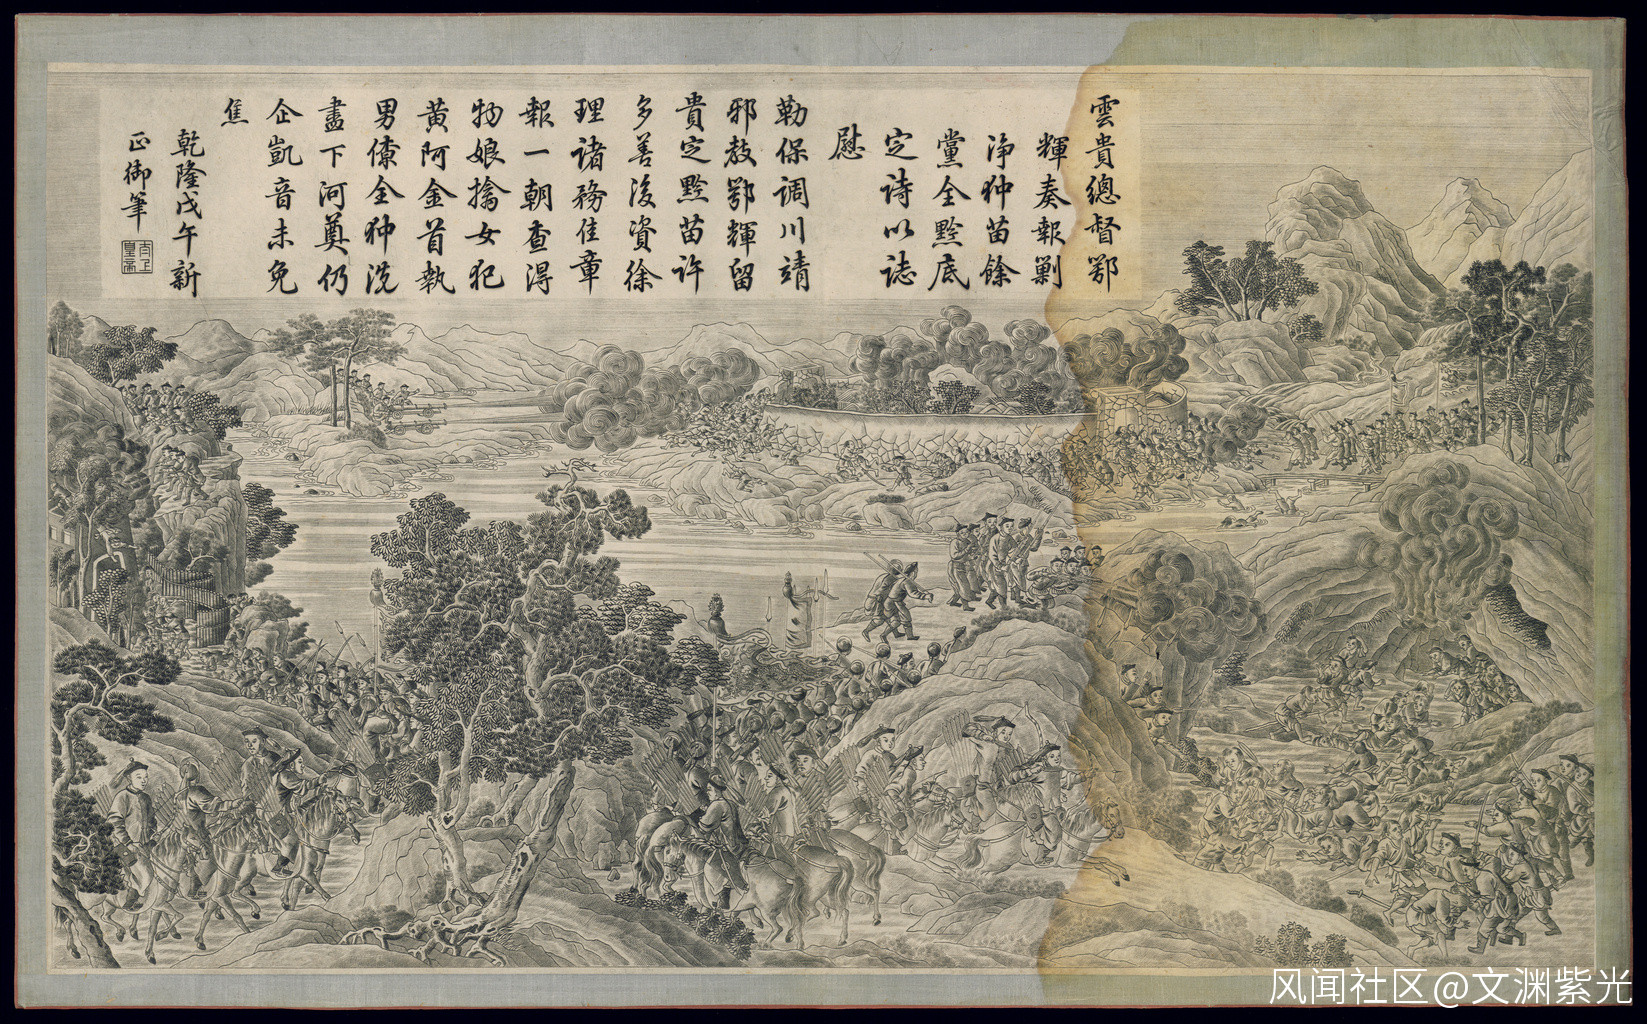 雲貴總督鄂
輝奏報剿
淨狆苗餘
黨全黔底
定詩以誌
慰
勒保調川靖
邪教鄂輝留
貴定黔苗許
多善後資徐
理諸務佳章
報一朝查得
物娘擒女犯
黃阿金首執
男僚全狆洗
盡下河奠仍
企凱音未免
焦
乾隆戊午新
正御筆
太上
皇帝
风闻社区@文渊紫光